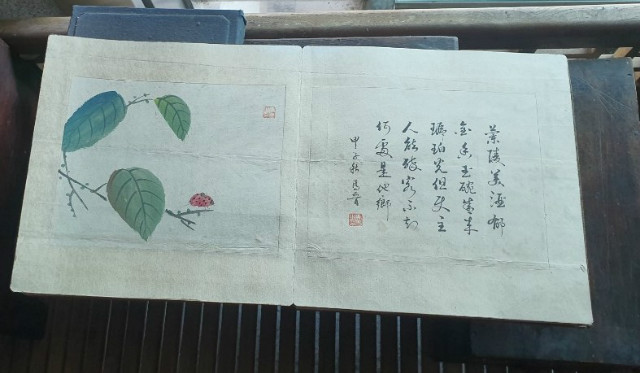 蘭陵美酒郁
金香玉碗盛来
琥珀光但使主
人能醉客不知
何處是他鄉
甲子秋